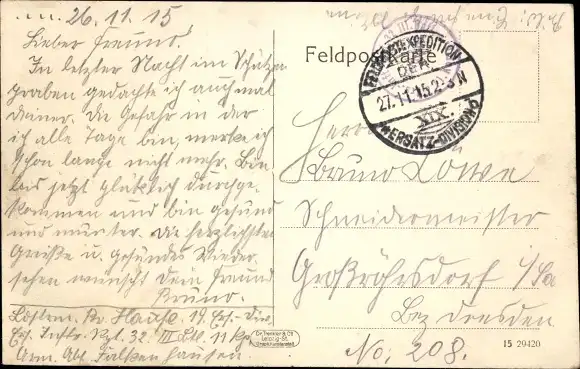 26.11.15
Lieber Freund.
In letzter Nacht im Schützen
graben gedachte ich auch mal
deiner. Die Gefahr in der
ich alle Tage bin, merke ich
schon lange nicht mehr. Bin
bis jetzt glücklich durchge-
kommen und bin gesund
und munter. Die herzlichsten
Grüße u. gesundes Wieder
sehen wünscht Dein Freund
Bruno.
19. Ers. Div.
Ers. Inftr. Rgt. 32. III Btl. 11 Kp.
Arm. Abt. Falkenhausen.
Feldpostkarte
FELDPOSTEXPEDITION
DER
27.11.15.2-3N
XIX.
*ERSATZ-DIVISION*
Herrn
Bruno Löwe
Schneidermeister
Großröhrsdorf i/Sa
Bez Dresden
No: 208.
15 29420